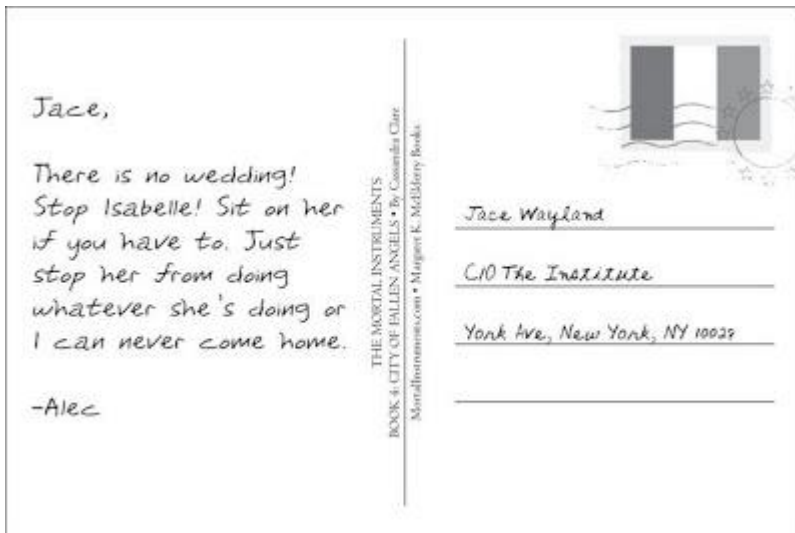 Jace,
There is no wedding!
Stop Isabelle! Sit on her
if you have to. Just
stop her from doing
whatever she's doing or
I can never come home.
-Alec
THE MORTAL INSTRUMENTS
BOOK 4: CITY OF FALLEN ANGELS • By Cassandra Clare
MortalInstruments.com • Margaret K. McElderry Books
Jace Wayland
C/O The Institute
York Ave, New York, NY 10029